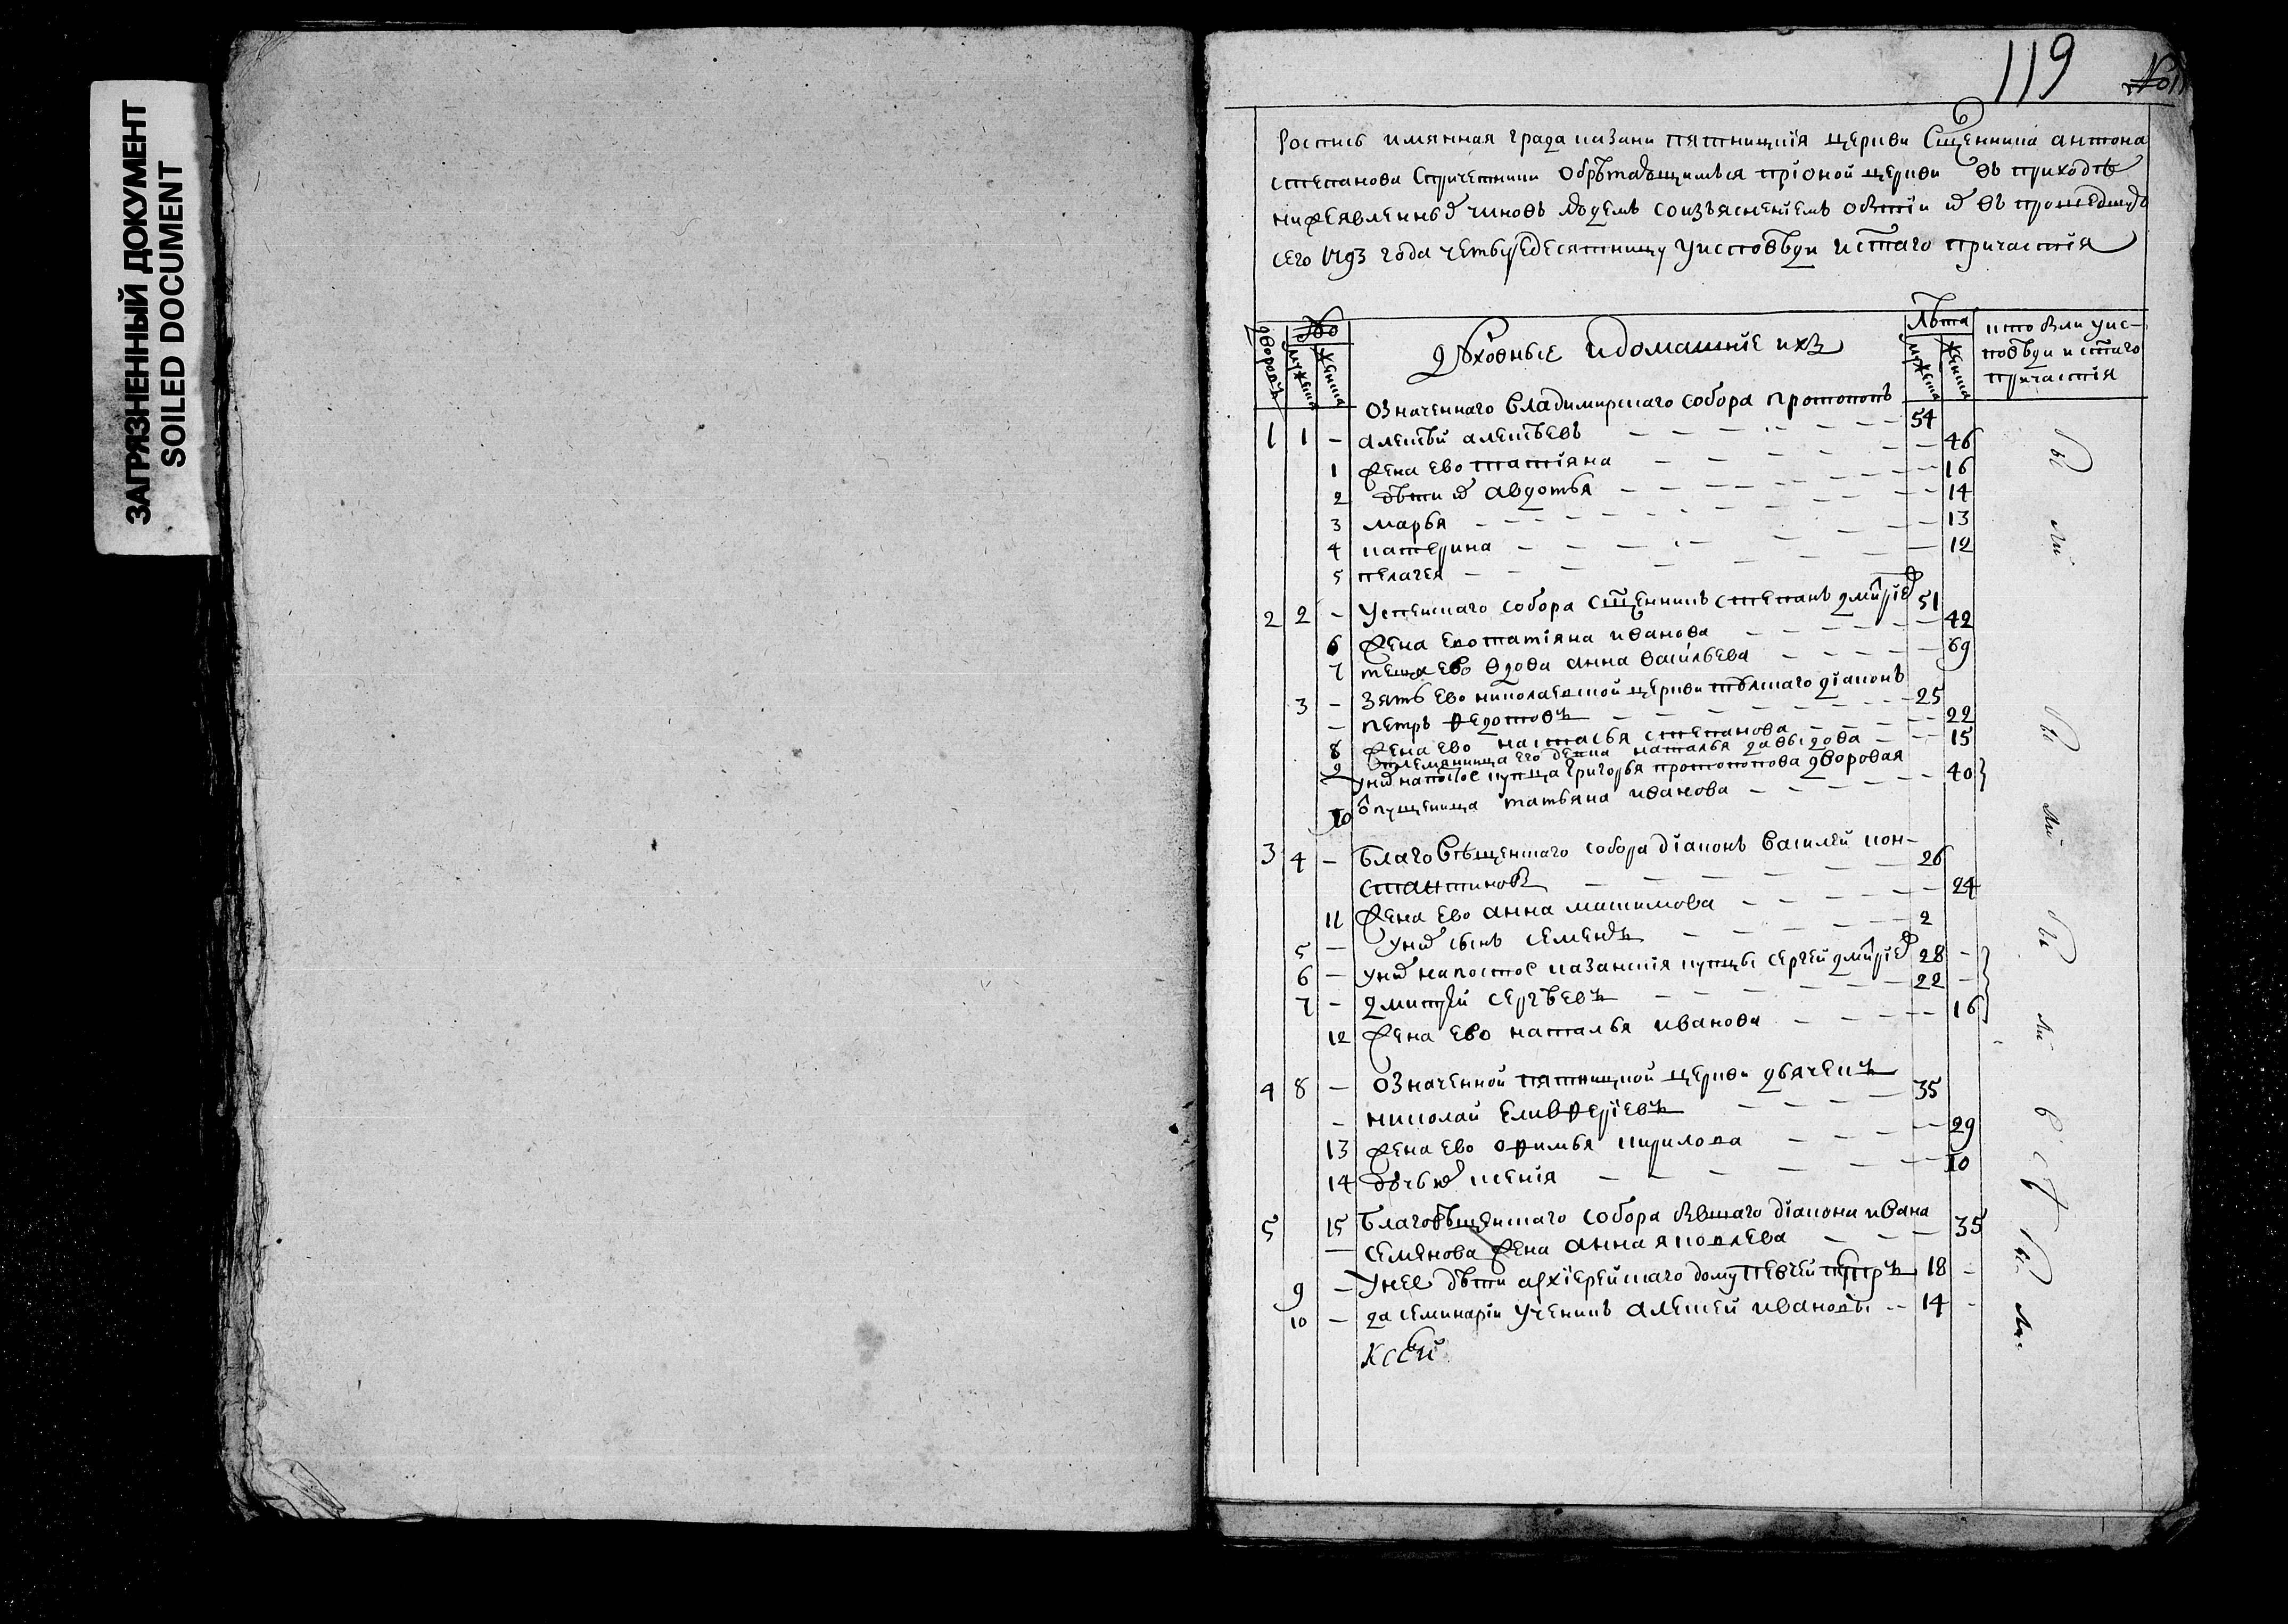 ЗАГРЯЗНЕННЫЙ ДОКУМЕНТ
SOILED DOCUMENT
119
Роспись имянная града казани пятницкія церкви Сщенника антона
степанова Спричетники Обрѣтающимъся пріоной церкви въ приходѣ
нижеявленныхъ чиновъ людемъ соизъясненіемъ о бытіи ихъ въ прошедшую
сего 1793 года четыредесятницу уисповѣди истаго причастія
дворовъ
мужеска
женска
Духовные идомашніе ихъ
Лѣта
мужеска
женска
кто были уис-
повѣди и стаго
причастія
Означеннаго Владимирскаго собора протопопъ
1 1 - алексѣй алексѣевъ 54
1 жена ево татіяна 46
2 дѣти ихъ авдотья 16
3 марья 14
4 катерина 13
5 пелагея 12
2 2 - Успенскаго собора сщенникъ степанъ дмитріевъ 51
6 жена ево татіяна иванова 42
7 теща ево вдова анна васильева 69
3 - зять ево николаевской церкви діаконъ
- петръ федотовъ 25
8 жена ево настасья степанова 22
9 племянница его девка наталья давыдова 15
унихъ напостое купца григорья протопопова дворовая
10 опущеница татьяна иванова 40
3 4 - Благовѣщенскаго собора діаконъ Василей кон-
стантиновъ 26
11 жена ево анна макимова 24
5 - унихъ сынъ семенъ 2
6 - унихъ напостое казанскія купцы сергей дмитріевъ 28 -
7 - дмитрей сергѣевъ 22 -
12 жена ево наталья иванова 16
4 8 - Означенной пятницкой церкви дьячекъ
- николай елиѳеріевъ 35
13 жена ево офимья кирилова 29
14 дочь их ксенія 10
5 15 благовѣщенскаго собора бывшаго діакона ивана
- семенова жена анна яковлева 35
9 - унее дѣти архіерейскаго дому певчей петръ 18 -
10 - да семинаріи ученикъ алексей ивановы 14 -
бы
ли
бы
ли
бы
ли
бы
ли